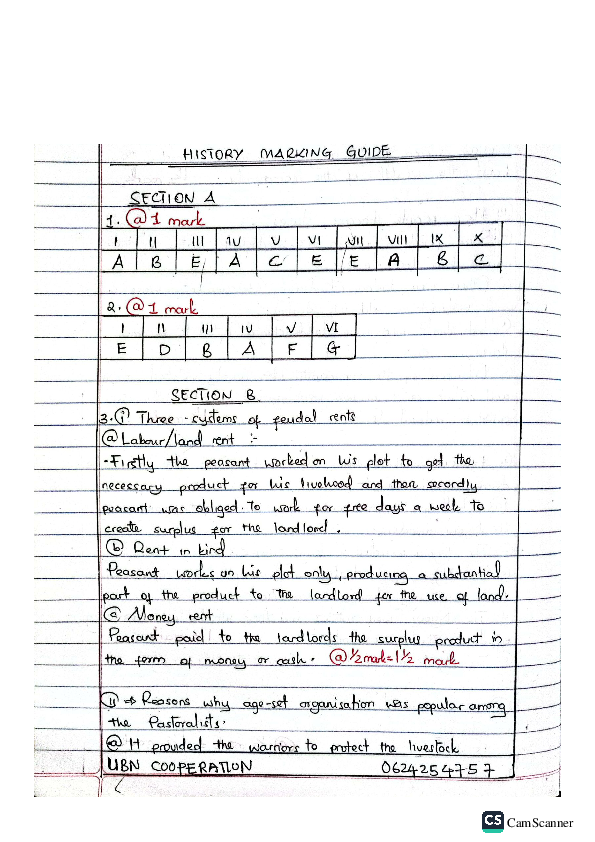 HISTORY MARKING GUIDE
SECTION A
1. @ 1 mark
I II III IV V VI VII VIII IX X
A B E A C E E A B C
2. @ 1 mark
I II III IV V VI
E D B A F G
SECTION B
3. (i) Three systems of feudal rents
(a) Labour/land rent :-
-Firstly the peasant worked on his plot to get the
necessary product for his livehood and then secondly
peasant was obliged. To work for free days a week to
create surplus for the landlord.
(b) Rent in kind
Peasant works on his plot only, producing a substantial
part of the product to the landlord for the use of land.
(c) Money rent
Peasant paid to the landlords the surplus product in
the form of money or cash. @ 1/2 mark = 1 1/2 mark
(ii) ⇒ Reasons why age-set organisation was popular among
the Pastoralists.
(a) It provided the warriors to protect the livestock
UBN COOPERATION 0624254757
CS CamScanner